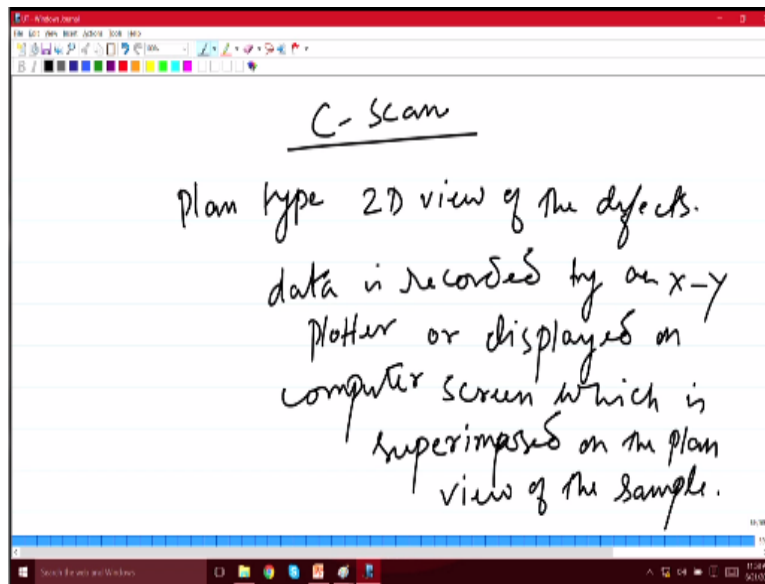 UT - Windows Journal
File Edit View Insert Actions Tools Help
B I
C-Scan
Plan type 2D view of the defects.
data is recorded by an x-y
plotter or displayed on
computer screen which is
superimposed on the plan
view of the sample.
Search the web and Windows